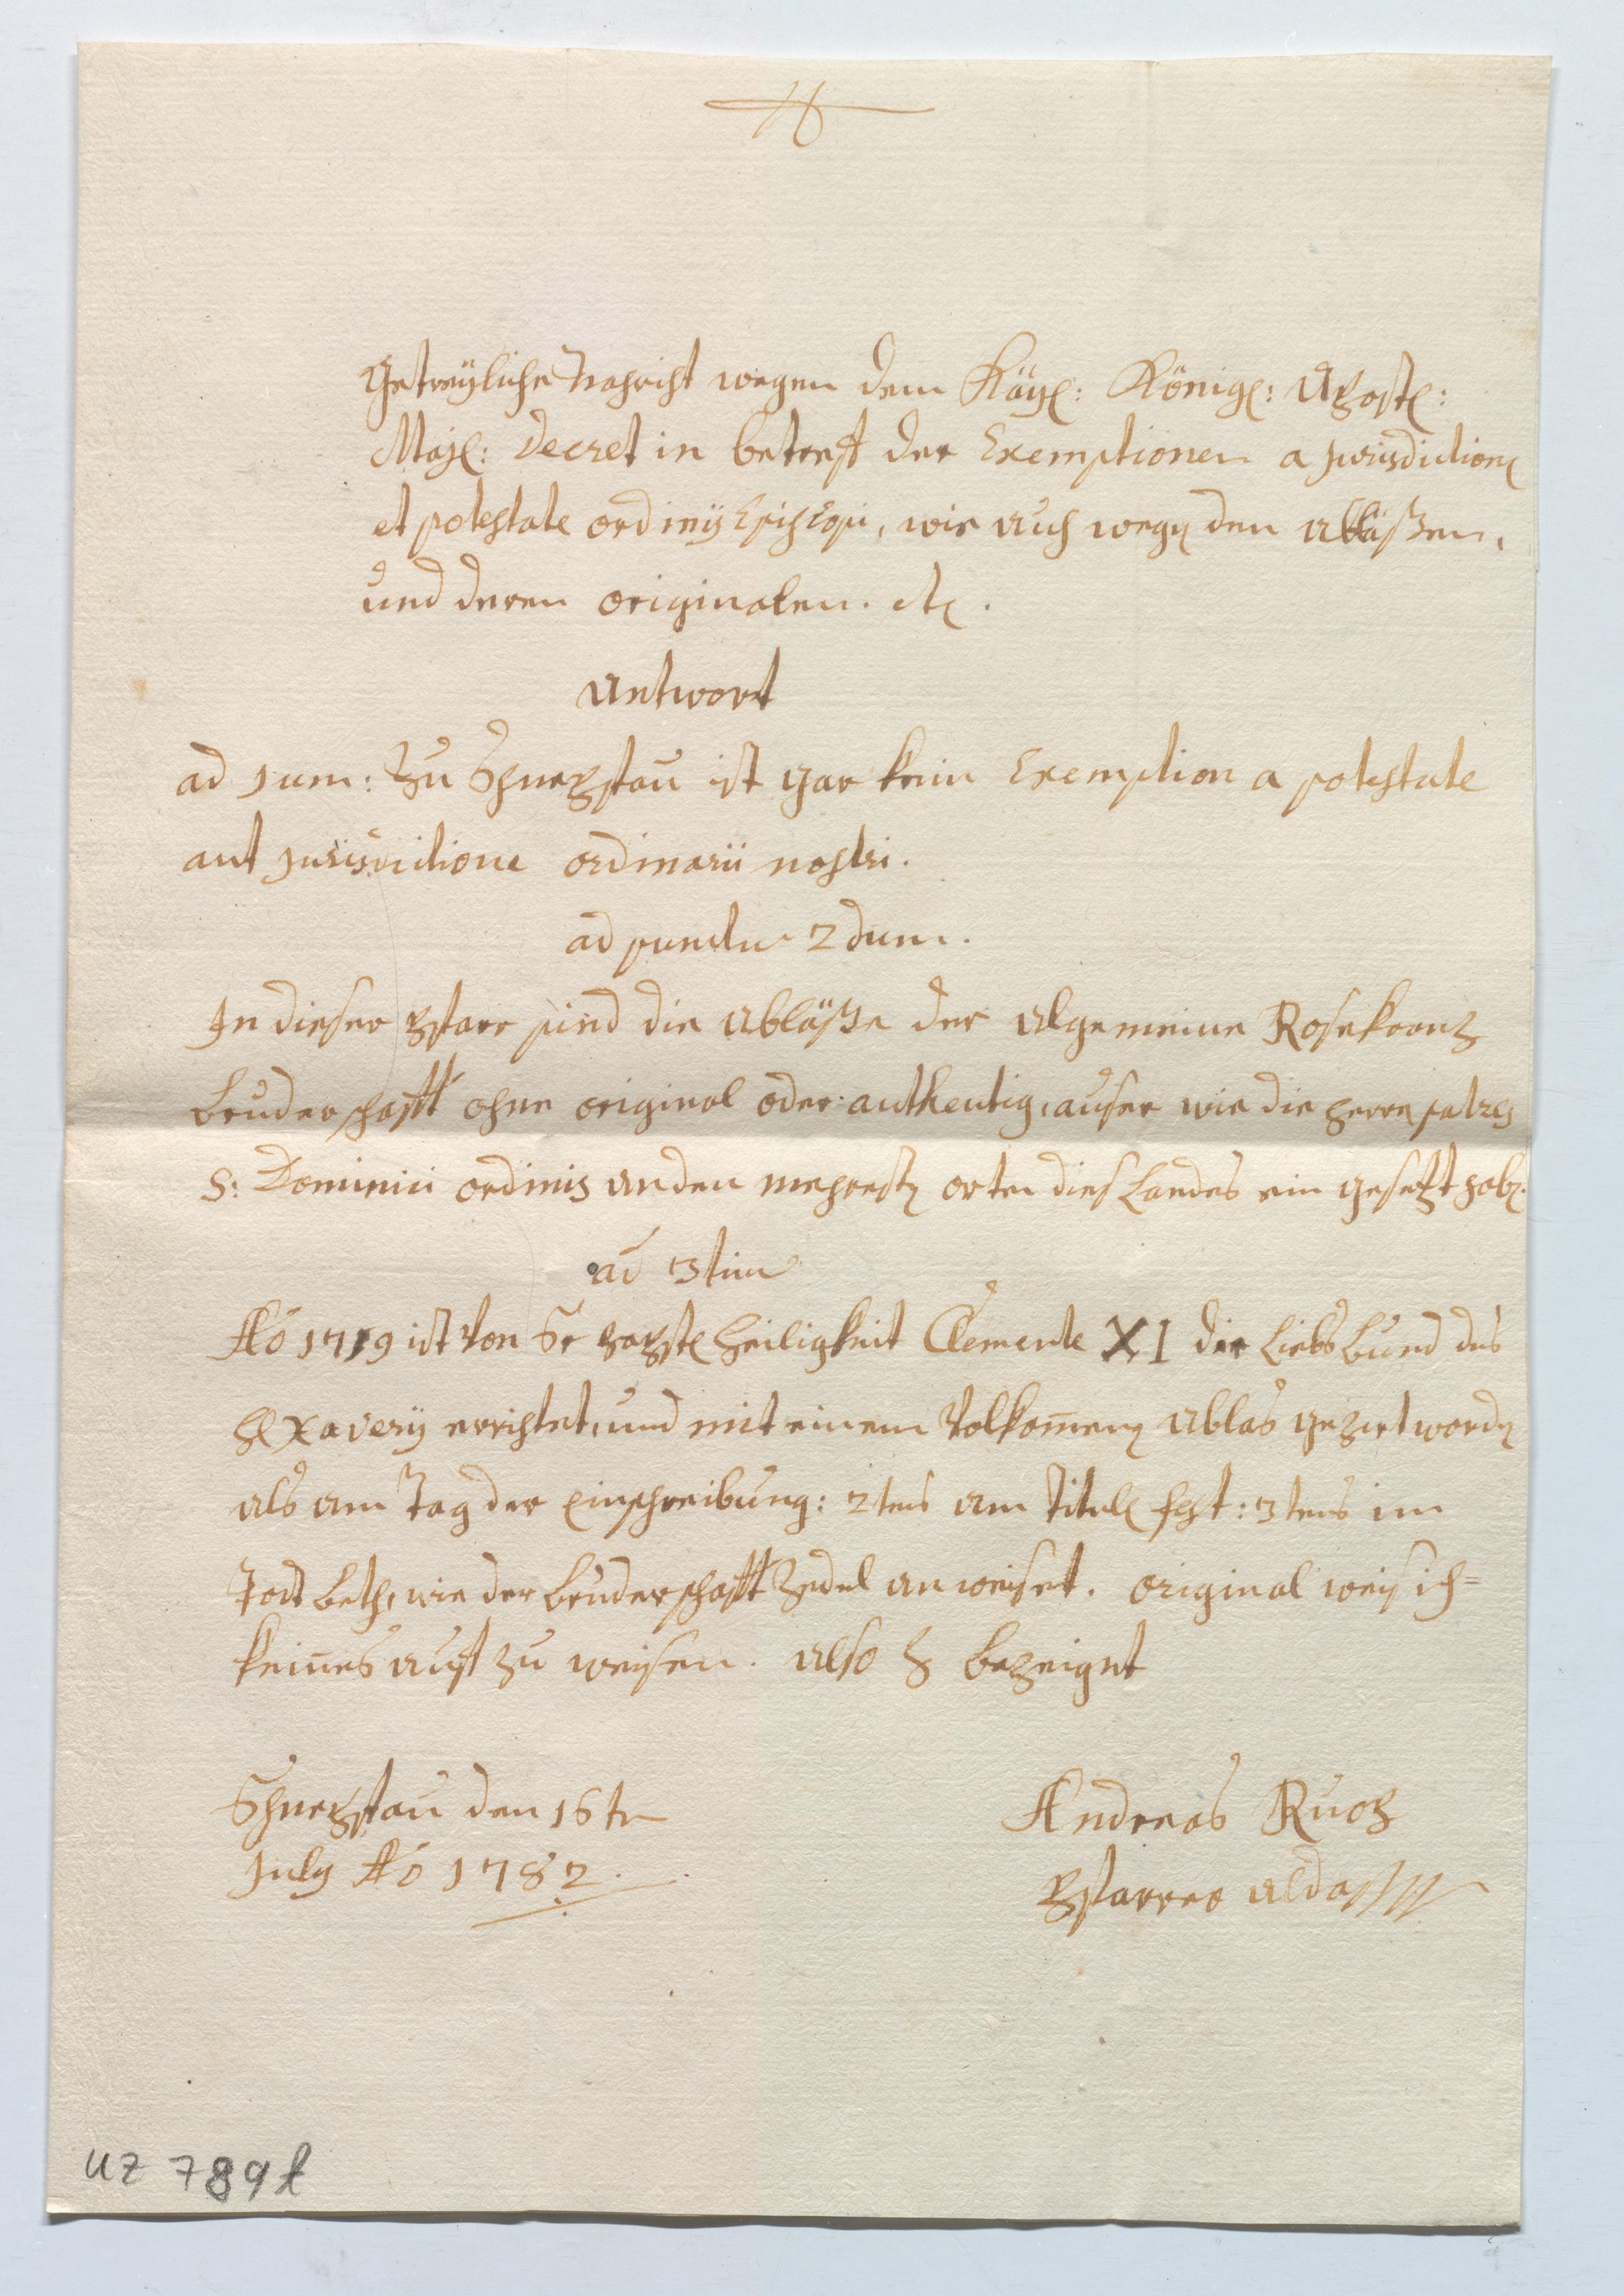 Getreyliche Nahricht wegen dem Käyl: Königl: Apostl:
Majl: Decret in betreff der Exemptionen a jurisdictione
et potestate ordinrij Episcopi, wie auch wegen den abläßen,
und deren originalen. etc.
Antwort
ad 1um: Zu Shnepfau ist gar kein Exemption a potestate
aut jurisdictione ordinarii nostri.
ad punctu 2dum.
In dieser Pfarr sind die abläße der algemeine Rosekranz
bruderschafft ohne original oder authentig, auser wie die herren patres
S: Dominici ordinis anden mehresten orten dies Landes ein gesetzt haben.
ad 3tium
Ao 1719 ist Von Sr Heiligkeit Clemente XI der Liebsbund des
Hl Xaverij errichtet, und mit einem Volkommenen ablas gezirt worden
als am Tag der Einschreibung: 2tens am Titul fest: 3tens im
Todt beth, wie der bruderschafft Zedel anweiset. original weis ich=
keines auff zu weisen. also bezeiget
Shnepfau den 16tn
July Ao 1782.
Andreas Ruoz
Pfarrer alda
UZ 789l